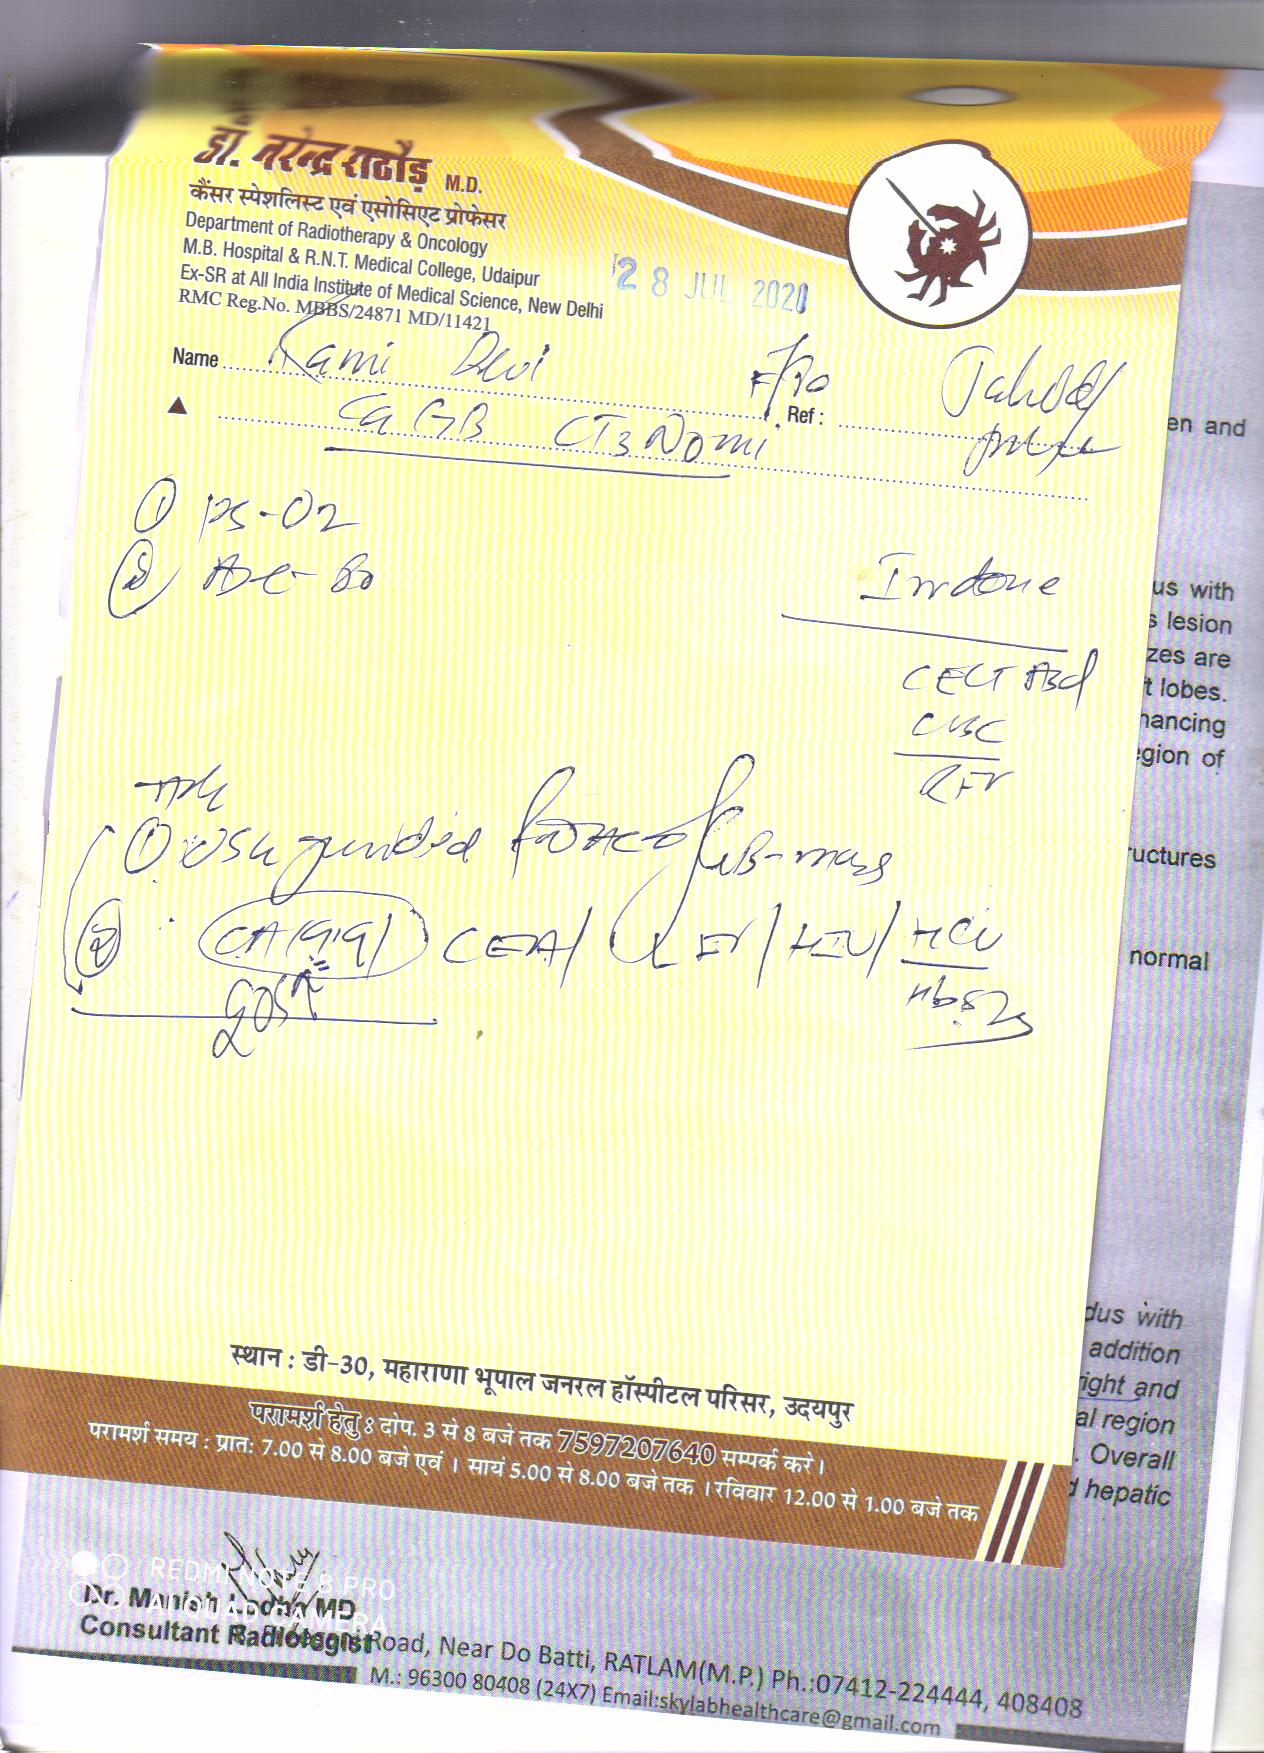 डॉ. नरेन्द्र राठौड़ M.D.
कैंसर स्पेशलिस्ट एवं एसोसिएट प्रोफेसर
Department of Radiotherapy & Oncology
M.B. Hospital & R.N.T. Medical College, Udaipur
Ex-SR at All India Institute of Medical Science, New Delhi
RMC Reg.No. MBBS/24871 MD/11421
28 JUL 2020
Name Devi
Ref :
Ca GB CT3N0M1
① PS-02
②
Inv done
CECT Abd
CBC
RFT
① USG guided FNAC of GB-mass
② CA19.9/ CEA/ LFT/ HIV/ HCV
HbsAg
en and
us with
s lesion
zes are
t lobes.
nancing
egion of
ructures
normal
dus with
addition
right and
al region
. Overall
d hepatic
स्थान : डी-30, महाराणा भूपाल जनरल हॉस्पीटल परिसर, उदयपुर
परामर्श हेतु : दोप. 3 से 8 बजे तक 7597207640 सम्पर्क करे।
परामर्श समय : प्रात: 7.00 से 8.00 बजे एवं । सायं 5.00 से 8.00 बजे तक । रविवार 12.00 से 1.00 बजे तक
REDMI NOTE 8 PRO
AI QUAD CAMERA
Dr. Manish Lodha MD
Consultant Radiologist
Road, Near Do Batti, RATLAM(M.P.) Ph.:07412-224444, 408408
M.: 96300 80408 (24X7) Email:skylabhealthcare@gmail.com